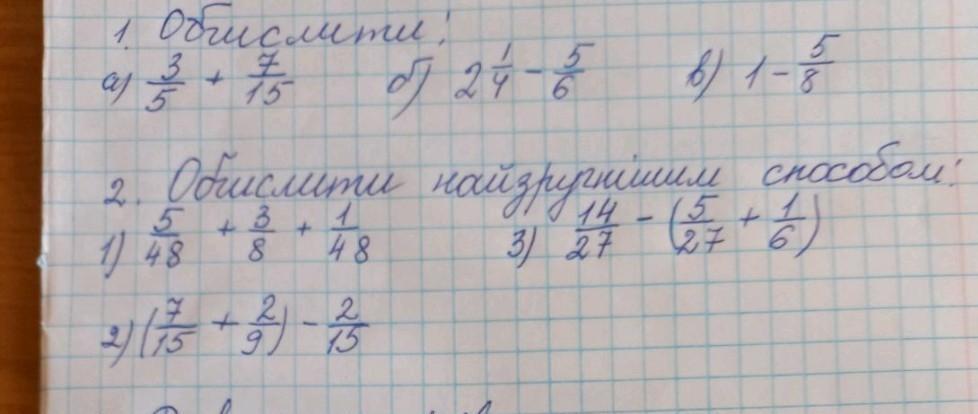 1. Обчислити:
а) 3/5 + 7/15 б) 2 1/4 - 5/6 в) 1 - 5/8
2. Обчислити найзручнішим способом:
1) 5/48 + 3/8 + 1/48 3) 14/27 - (5/27 + 1/6)
2) (7/15 + 2/9) - 2/15